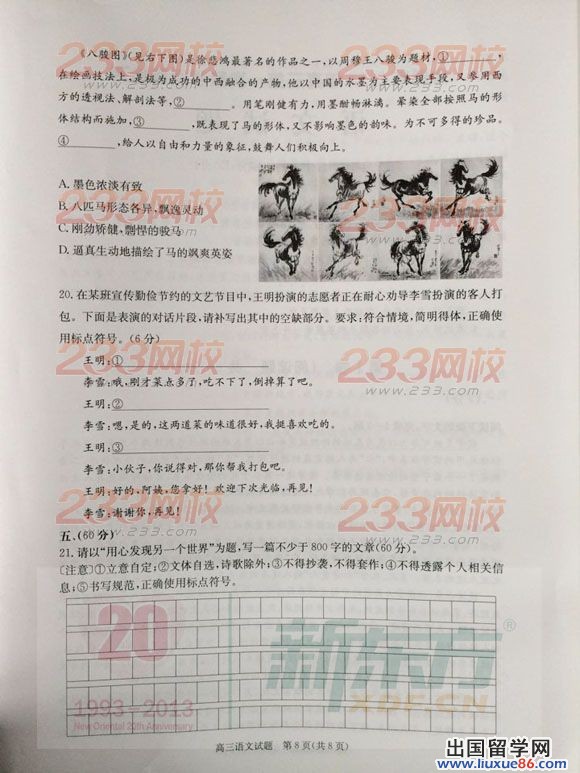 《八骏图》(见右下图)是徐悲鸿最著名的作品之一,以周穆王八骏为题材,①
在绘画技法上,是极为成功的中西融合的产物,他以中国的水墨为主要表现手段,又参用西
方的透视法、解剖法等,②。用笔刚健有力,用墨酣畅淋漓。晕染全部按照马的形
体结构而施加,③,既表现了马的形体,又不影响墨色的韵味。为不可多得的珍品。
④,给人以自由和力量的象征,鼓舞人们积极向上。
A. 墨色浓淡有致
B. 八匹马形态各异,飘逸灵动
C. 刚劲矫健,剽悍的骏马
D. 逼真生动地描绘了马的飒爽英姿
20. 在某班宣传勤俭节约的文艺节目中,王明扮演的志愿者正在耐心劝导李雪扮演的客人打
包。下面是表演的对话片段,请补写出其中的空缺部分。要求:符合情境,简明得体,正确使
用标点符号。(6分)
王明:①
李雪:哦,刚才菜点多了,吃不下了,倒掉算了吧。
王明:②
李雪:嗯,是的,这两道菜的味道很好,我挺喜欢吃的。
王明:③
李雪:小伙子,你说得对,那你帮我打包吧。
王明:好的,阿姨,您拿好!欢迎下次光临,再见!
李雪:谢谢你,再见!
五、(60分)
21. 请以“用心发现另一个世界”为题,写一篇不少于800字的文章(60分)。
[注意]①立意自定;②文体自选,诗歌除外;③不得抄袭,不得套作;④不得透露个人相关信
息;⑤书写规范,正确使用标点符号。
高三语文试题 第8页(共8页)
233网校
www.233.com
233网校
www.233.com
233网校
www.233.com
233网校
www.233.com
233网校
www.233.com
233网校
www.233.com
20
1993-2013
New Oriental 20th Anniversary
新东方®
XDF.CN
出国留学网
www.liuxue86.com